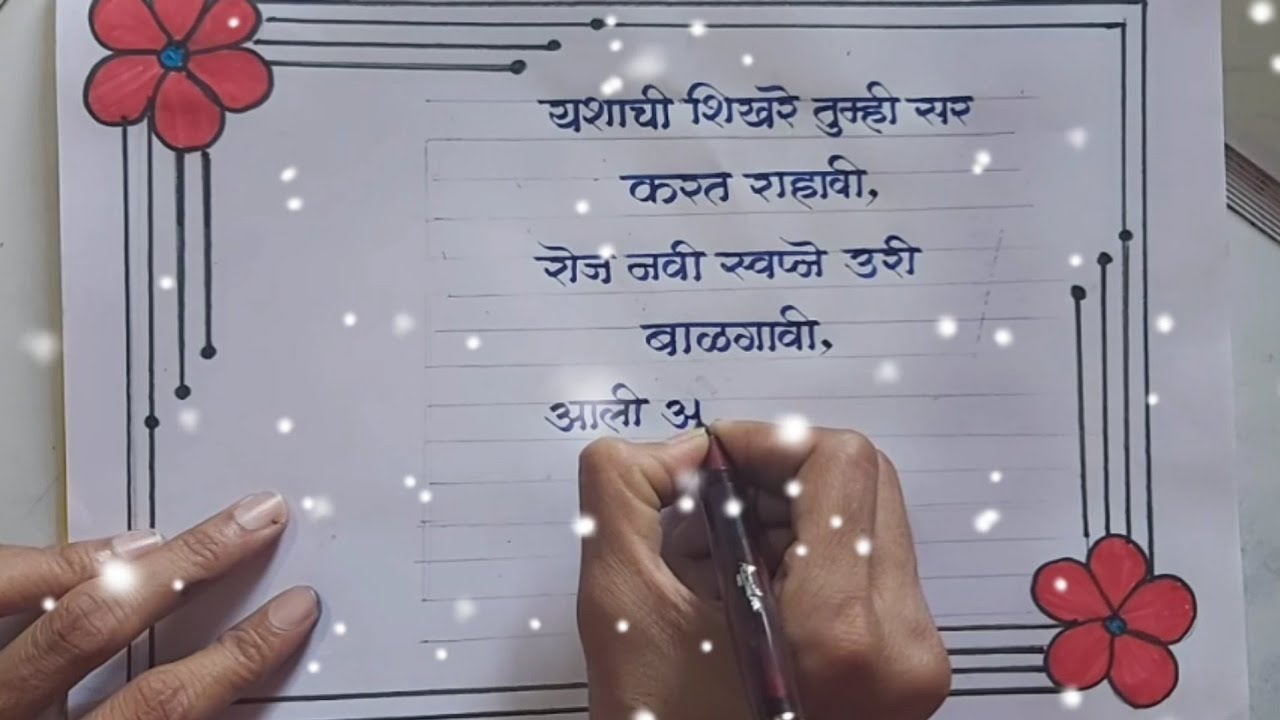 यशाची शिखरे तुम्ही सर
करत राहावी,
रोज नवी स्वप्ने उरी
बाळगावी,
आली अ